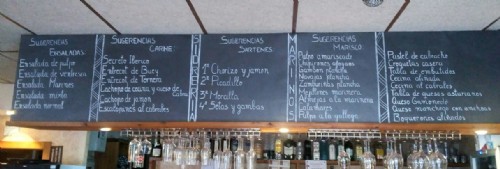 SUGERENCIAS
ENSALADAS
Ensalada de pulpo
Ensalada de ventresca
Ensalada Marines
Ensalada mixta
Ensalada normal
SUGERENCIAS
CARNE
Secreto Iberico
Entrecot de Buey
Entrecot de Ternera
Cachopo de cecina y queso de
Cabra
Cachopo de jamon
Escalopines al cabrales
SIDRERIA
SUGERENCIAS
SARTENES
1ª Chorizo y jamon
2ª Picadillo
3ª Morcilla
4ª Setas y gambas
MARINOS
SUGERENCIAS
MARISCO
Pulpo amariscado
Chipirones afogaos
Gambas plancha
Navajas plancha
Zamburiñas plancha
Mejillones marinera
Almejas a la marinera
Calamares
Pulpo a la gallega
Pastel de cabracho
Croquetas casera
Tabla de embutidos
Cecina aliñada
Cecina al cabrales
Tabla de quesos asturianos
Queso Gamonedo
Queso manchego con anchoas
Boquerones aliñados